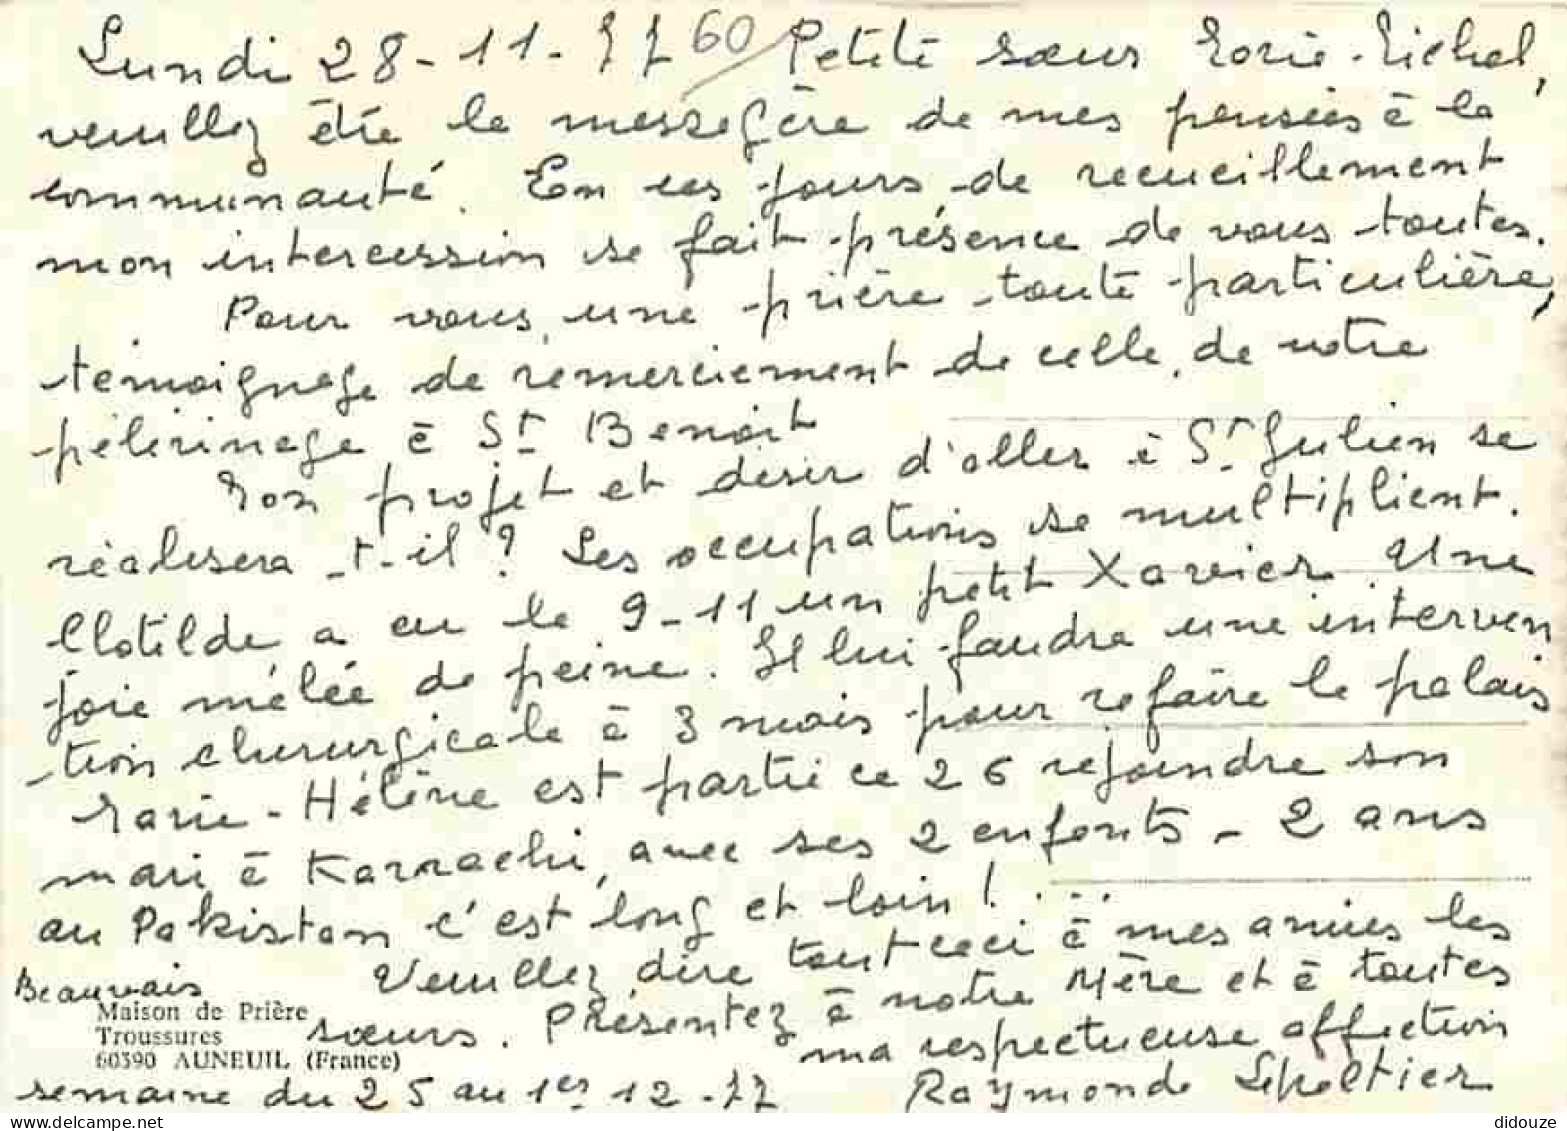 Lundi 28-11-77 60 Petite sœur Marie-Michel,
veuillez être la messagère de mes pensées à la
communauté. En ces jours de recueillement
mon intercession se fait présence de vous toutes.
Pour vous, une prière toute particulière,
témoignage de remerciement de celle, de notre
pélerinage à St Benoit
Mon projet et désir d'aller à St Julien se
réalisera-t-il ? Les occupations se multiplient.
Clotilde a eu le 9-11 un petit Xavier. Une
joie mélée de peine. Il lui faudra une interven
tion chirurgicale à 3 mois pour refaire le palais
Marie-Hélène est partie ce 26 rejoindre son
mari à Karrachi, avec ses 2 enfants - 2 ans
au Pakistan c'est long et loin !...
Veuillez dire tout ceci à mes amies les
sœurs. Présentez à notre Mère et à toutes
ma respectueuse affection
Raymonde
Beauvais
Maison de Prière
Troussures
60390 AUNEUIL (France)
semaine du 25 au 1er 12-77
www.delcampe.net
didouze